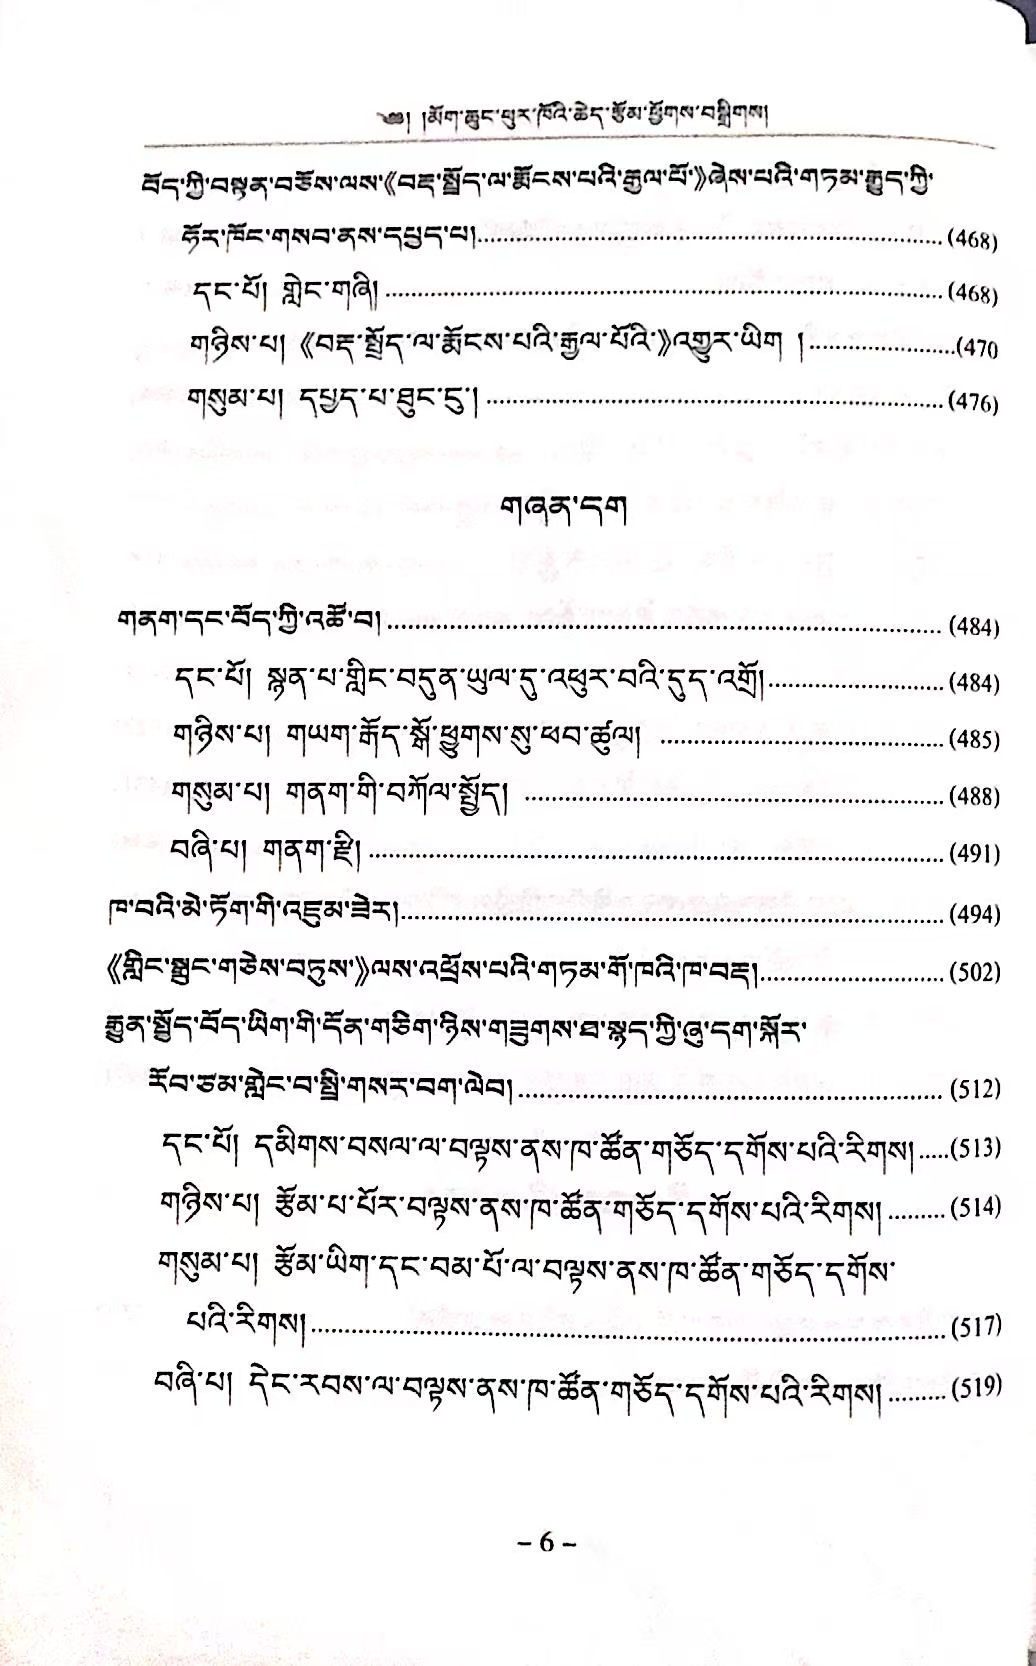 ༄༅། །མོག་ཆུང་ཕུར་ཁོའི་ཆེད་རྩོམ་ཕྱོགས་བསྒྲིགས།
བོད་ཀྱི་བསྟན་བཅོས་ལས་《བརྡ་སྤྲོད་ལ་རྨོངས་པའི་རྒྱལ་པོ་》ཞེས་པའི་གཏམ་རྒྱུད་ཀྱི་
ཧོར་ཁོང་གསབ་ནས་དཔྱད་པ།........(468)
དང་པོ། གླེང་གཞི།........(468)
གཉིས་པ། 《བརྡ་སྤྲོད་ལ་རྨོངས་པའི་རྒྱལ་པོའི་》འགྱུར་ཡིག །........(470
གསུམ་པ། དཔྱད་པ་ཐུང་ངུ་།........(476)
གཞན་དག
གནག་དང་བོད་ཀྱི་འཚོ་བ།........(484)
དང་པོ། སྙན་པ་གླིང་བདུན་ཡུལ་དུ་འཕུར་བའི་དུད་འགྲོ།........(484)
གཉིས་པ། གཡག་རྒོད་སྒོ་ཕྱུགས་སུ་ཕབ་ཚུལ། ........(485)
གསུམ་པ། གནག་གི་བཀོལ་སྤྱོད། ........(488)
བཞི་པ། གནག་རྫི།........(491)
ཁ་བའི་མེ་ཏོག་གི་འཛུམ་ཟེར།........(494)
《གླིང་སྒྲུང་གཅེས་བཏུས་》ལས་འཕྲོས་པའི་གཏམ་གོ་ཁའི་ཁ་བརྡ།........(502)
རྒྱུན་སྤྱོད་བོད་ཡིག་གི་དོན་གཅིག་ཉིས་གཟུགས་ཐ་སྙད་ཀྱི་ཞུ་དག་སྐོར་
རོབ་ཙམ་གླེང་བ་སྤྲི་གསར་བག་ལེབ།........(512)
དང་པོ། དམིགས་བསལ་ལ་བལྟས་ནས་ཁ་ཚོན་གཅོད་དགོས་པའི་རིགས།.....(513)
གཉིས་པ། རྩོམ་པ་པོར་བལྟས་ནས་ཁ་ཚོན་གཅོད་དགོས་པའི་རིགས།.........(514)
གསུམ་པ། རྩོམ་ཡིག་དང་བམ་པོ་ལ་བལྟས་ནས་ཁ་ཚོན་གཅོད་དགོས་
པའི་རིགས།........(517)
བཞི་པ། དེང་རབས་ལ་བལྟས་ནས་ཁ་ཚོན་གཅོད་དགོས་པའི་རིགས།.........(519)
– 6 –